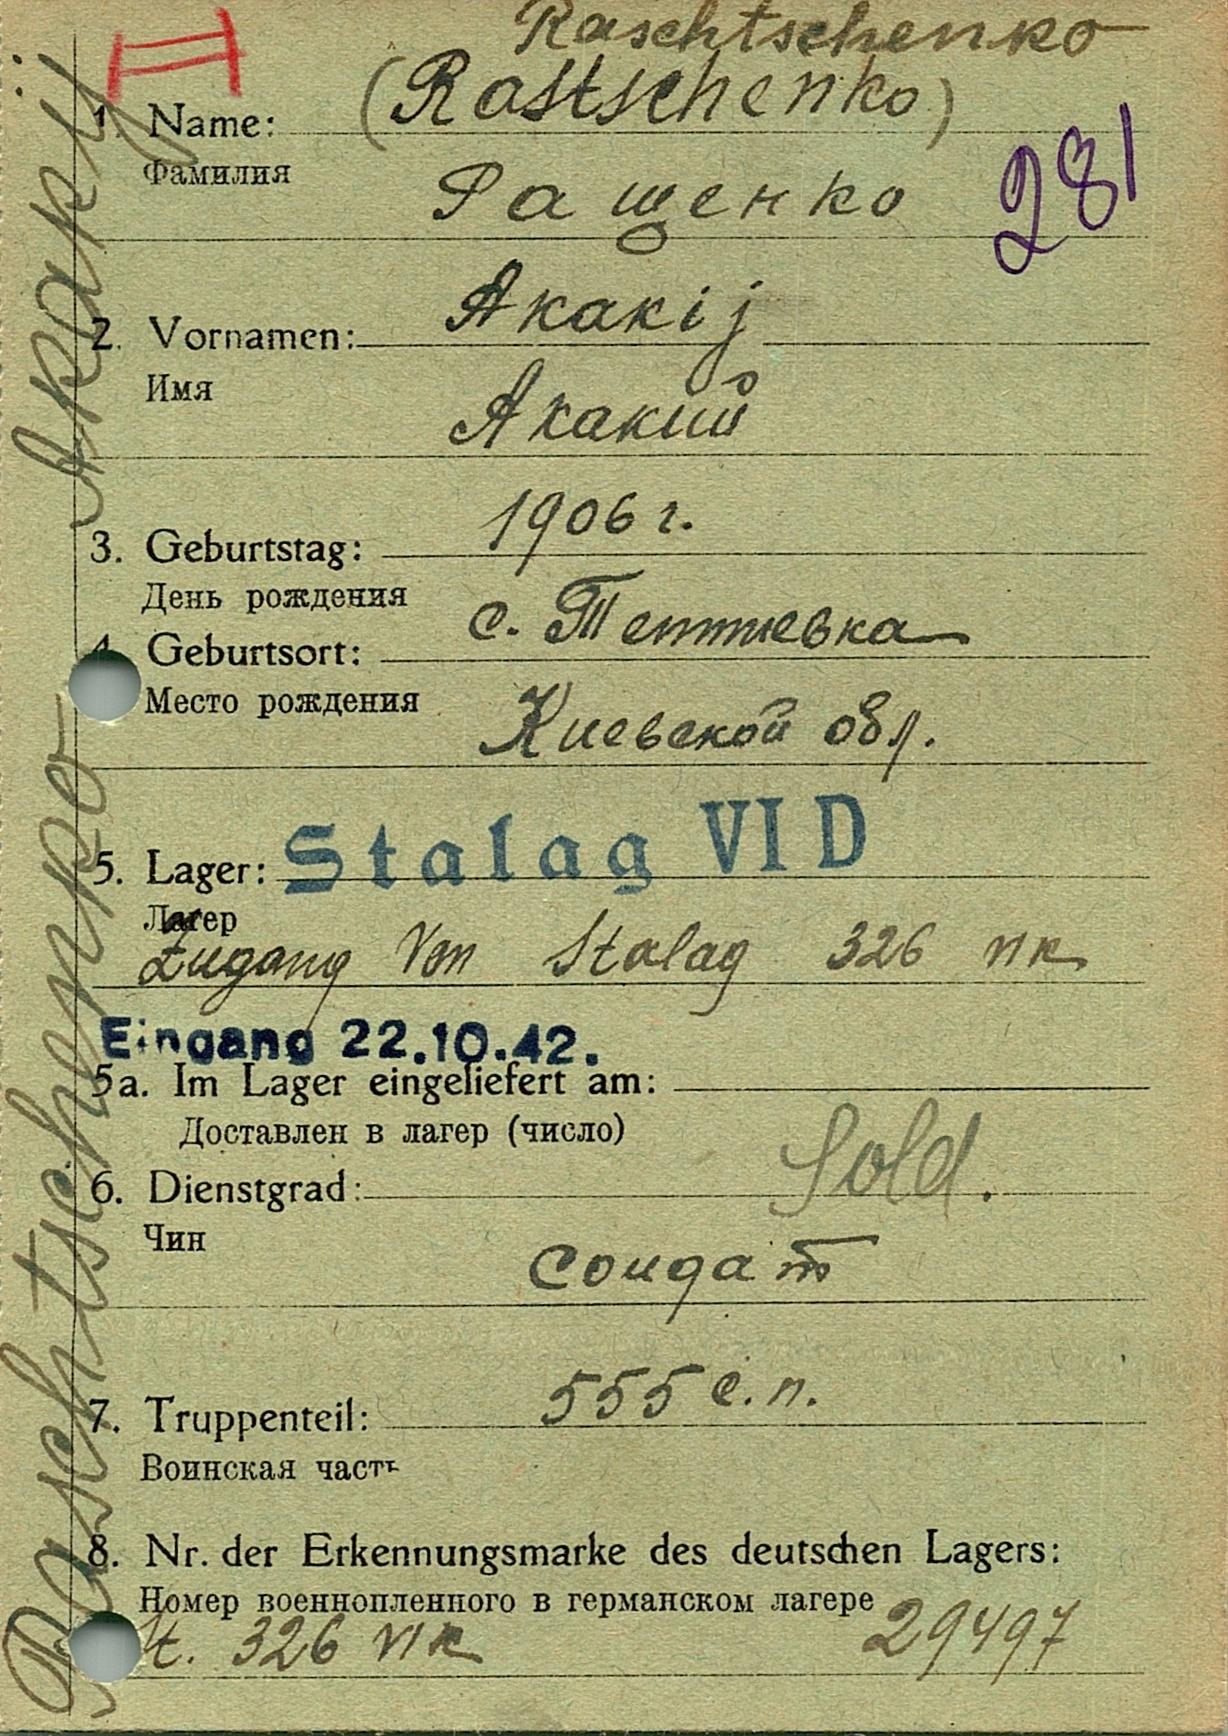 Raschtschenko
1. Name: (Rastschenko)
Фамилия
Ращенко
281
2. Vornamen: Akakij
Имя
Акакий
3. Geburtstag: 1906 г.
День рождения
4. Geburtsort: с. Тептиевка
Место рождения
Киевской обл.
5. Lager: Stalag VI D
Лагер
Zugang Von Stalag 326 VI K
Eingang 22.10.42.
5a. Im Lager eingeliefert am:
Доставлен в лагер (число)
6. Dienstgrad: Sold.
Чин
солдат
7. Truppenteil: 555 с.п.
Воинская часть
8. Nr. der Erkennungsmarke des deutschen Lagers:
Номер военнопленного в германском лагере
St. 326 VI K 29497
Raschtschenko Akakij